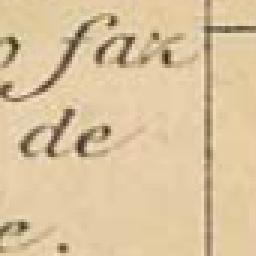 fax
de
e.